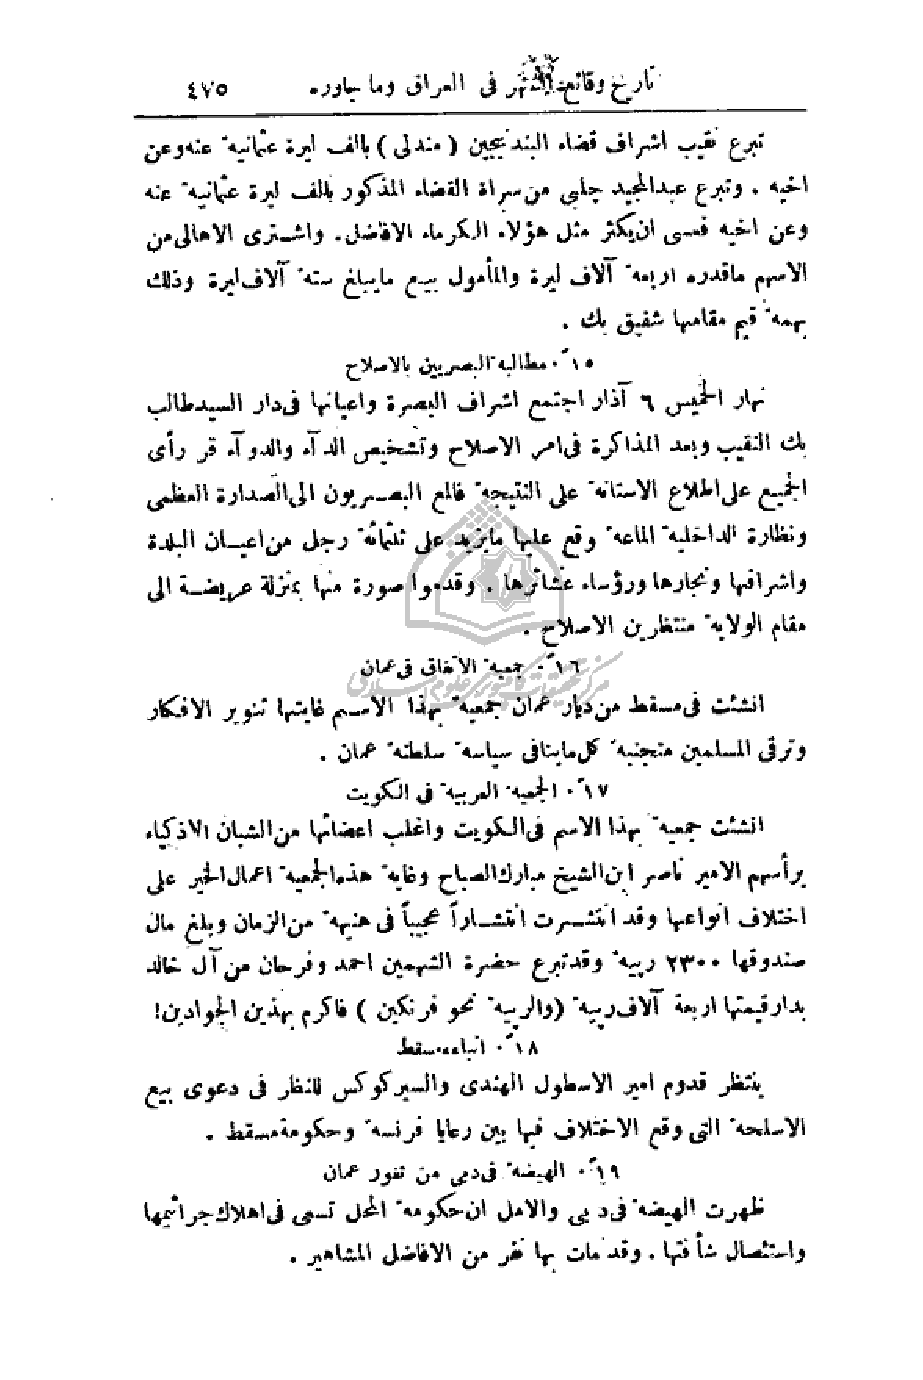 تاريخ وقائع الشهر فى العراق وما جاوره ٤٧٥
تبرع نقيب اشراف قضاء البندنيجين ( مندلى ) بالف ليرة عثمانية عنه وعن
اخيه . وتبرع عبدالمجيد چلبى من سراة القضاء المذكور بالف ليرة عثمانية عنه
وعن اخيه فعسى ان يكثر مثل هؤلاء الكرماء الافاضل . واشترى الاهالى من
الاسهم ماقدره اربعة آلاف ليرة والمأمول بيع مايبلغ ستة آلاف ليرة وذلك
بهمة قيم مقامها شفيق بك .
١٥ً . مطالبة البصريين بالاصلاح
نهار الخميس ٦ آذار اجتمع اشراف البصرة واعيانها فى دار السيد طالب
بك النقيب وبعد المذاكرة فى امر الاصلاح وتشخيص الدآء والدوآء قر رأى
الجميع على اطلاع الاستانة على النتيجة فالمع البصريون الى الصدارة العظمى
ونظارة الداخلية الماعة وقع عليها مايزيد على ثلثمائة رجل من اعيان البلدة
واشرافها وتجارها ورؤساء عشائرها . وقدموا صورة منها بمنزلة عريضة الى
مقام الولاية منتظرين الاصلاح .
١٦ً . جمعية الاتفاق فى عمان
انشئت فى مسقط من ديار عمان جمعية بهذا الاسم غايتها تنوير الافكار
وترقى المسلمين متجنبة كل ماينافى سياسة سلطنة عمان .
١٧ً . الجمعية العربية فى الكويت
انشئت جمعية بهذا الاسم فى الكويت واغلب اعضائها من الشبان الاذكياء
يرأسهم الامير ناصر ابن الشيخ مبارك الصباح وغاية هذه الجمعية اعمال الخير على
اختلاف انواعها وقد انتشرت انتشاراً عجيباً فى هنيهة من الزمان وبلغ مال
صندوقها ٢٣٠٠ ربية وقد تبرع حضرة الشهمين احمد وفرحان من آل خالد
بدار قيمتها اربعة آلاف ربية (والربية نحو فرنكين ) فاكرم بهذين الجوادين!
١٨ً . انباء مسقط
ينتظر قدوم امير الاسطول الهندى والسير كوكس للنظر فى دعوى بيع
الاسلحة التى وقع الاختلاف فيها بين رعايا فرنسة وحكومة مسقط .
١٩ً . الهيضة فى دبى من ثغور عمان
ظهرت الهيضة فى دبى والامل ان حكومة المحل تسعى فى اهلاك جراثيمها
واستئصال شأفتها . وقد مات بها نفر من الافاضل المشاهير .